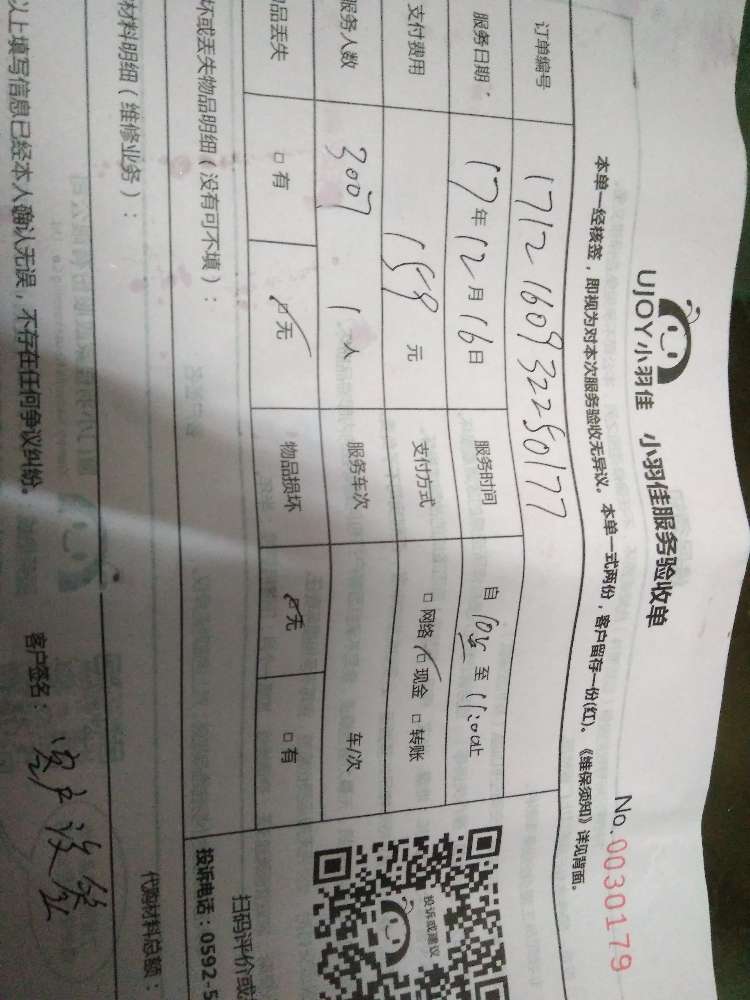 UJOY小羽佳 小羽佳服务验收单
No. 0030179
本单一经核签，即视为对本次服务验收无异议。本单一式两份，客户留存一份(红)。《维保须知》详见背面。
订单编号 1712160932250177
服务日期： 17年12月16日 服务时间 自 至 11:00止
支付费用 159 元 支付方式 □ 网络 □ 现金 □ 转账
服务人数 3007 1 人 服务车次 车/次
品丢失 □ 有 □ 无 物品损坏 □ 无 □ 有
坏或丢失物品明细（没有可不填）：
材料明细（维修业务）： 代购材料总额：
以上填写信息已经本人确认无误，不存在任何争议纠纷。 客户签名： 客户没签
投诉或建议
扫码评价或
投诉电话：0592-5